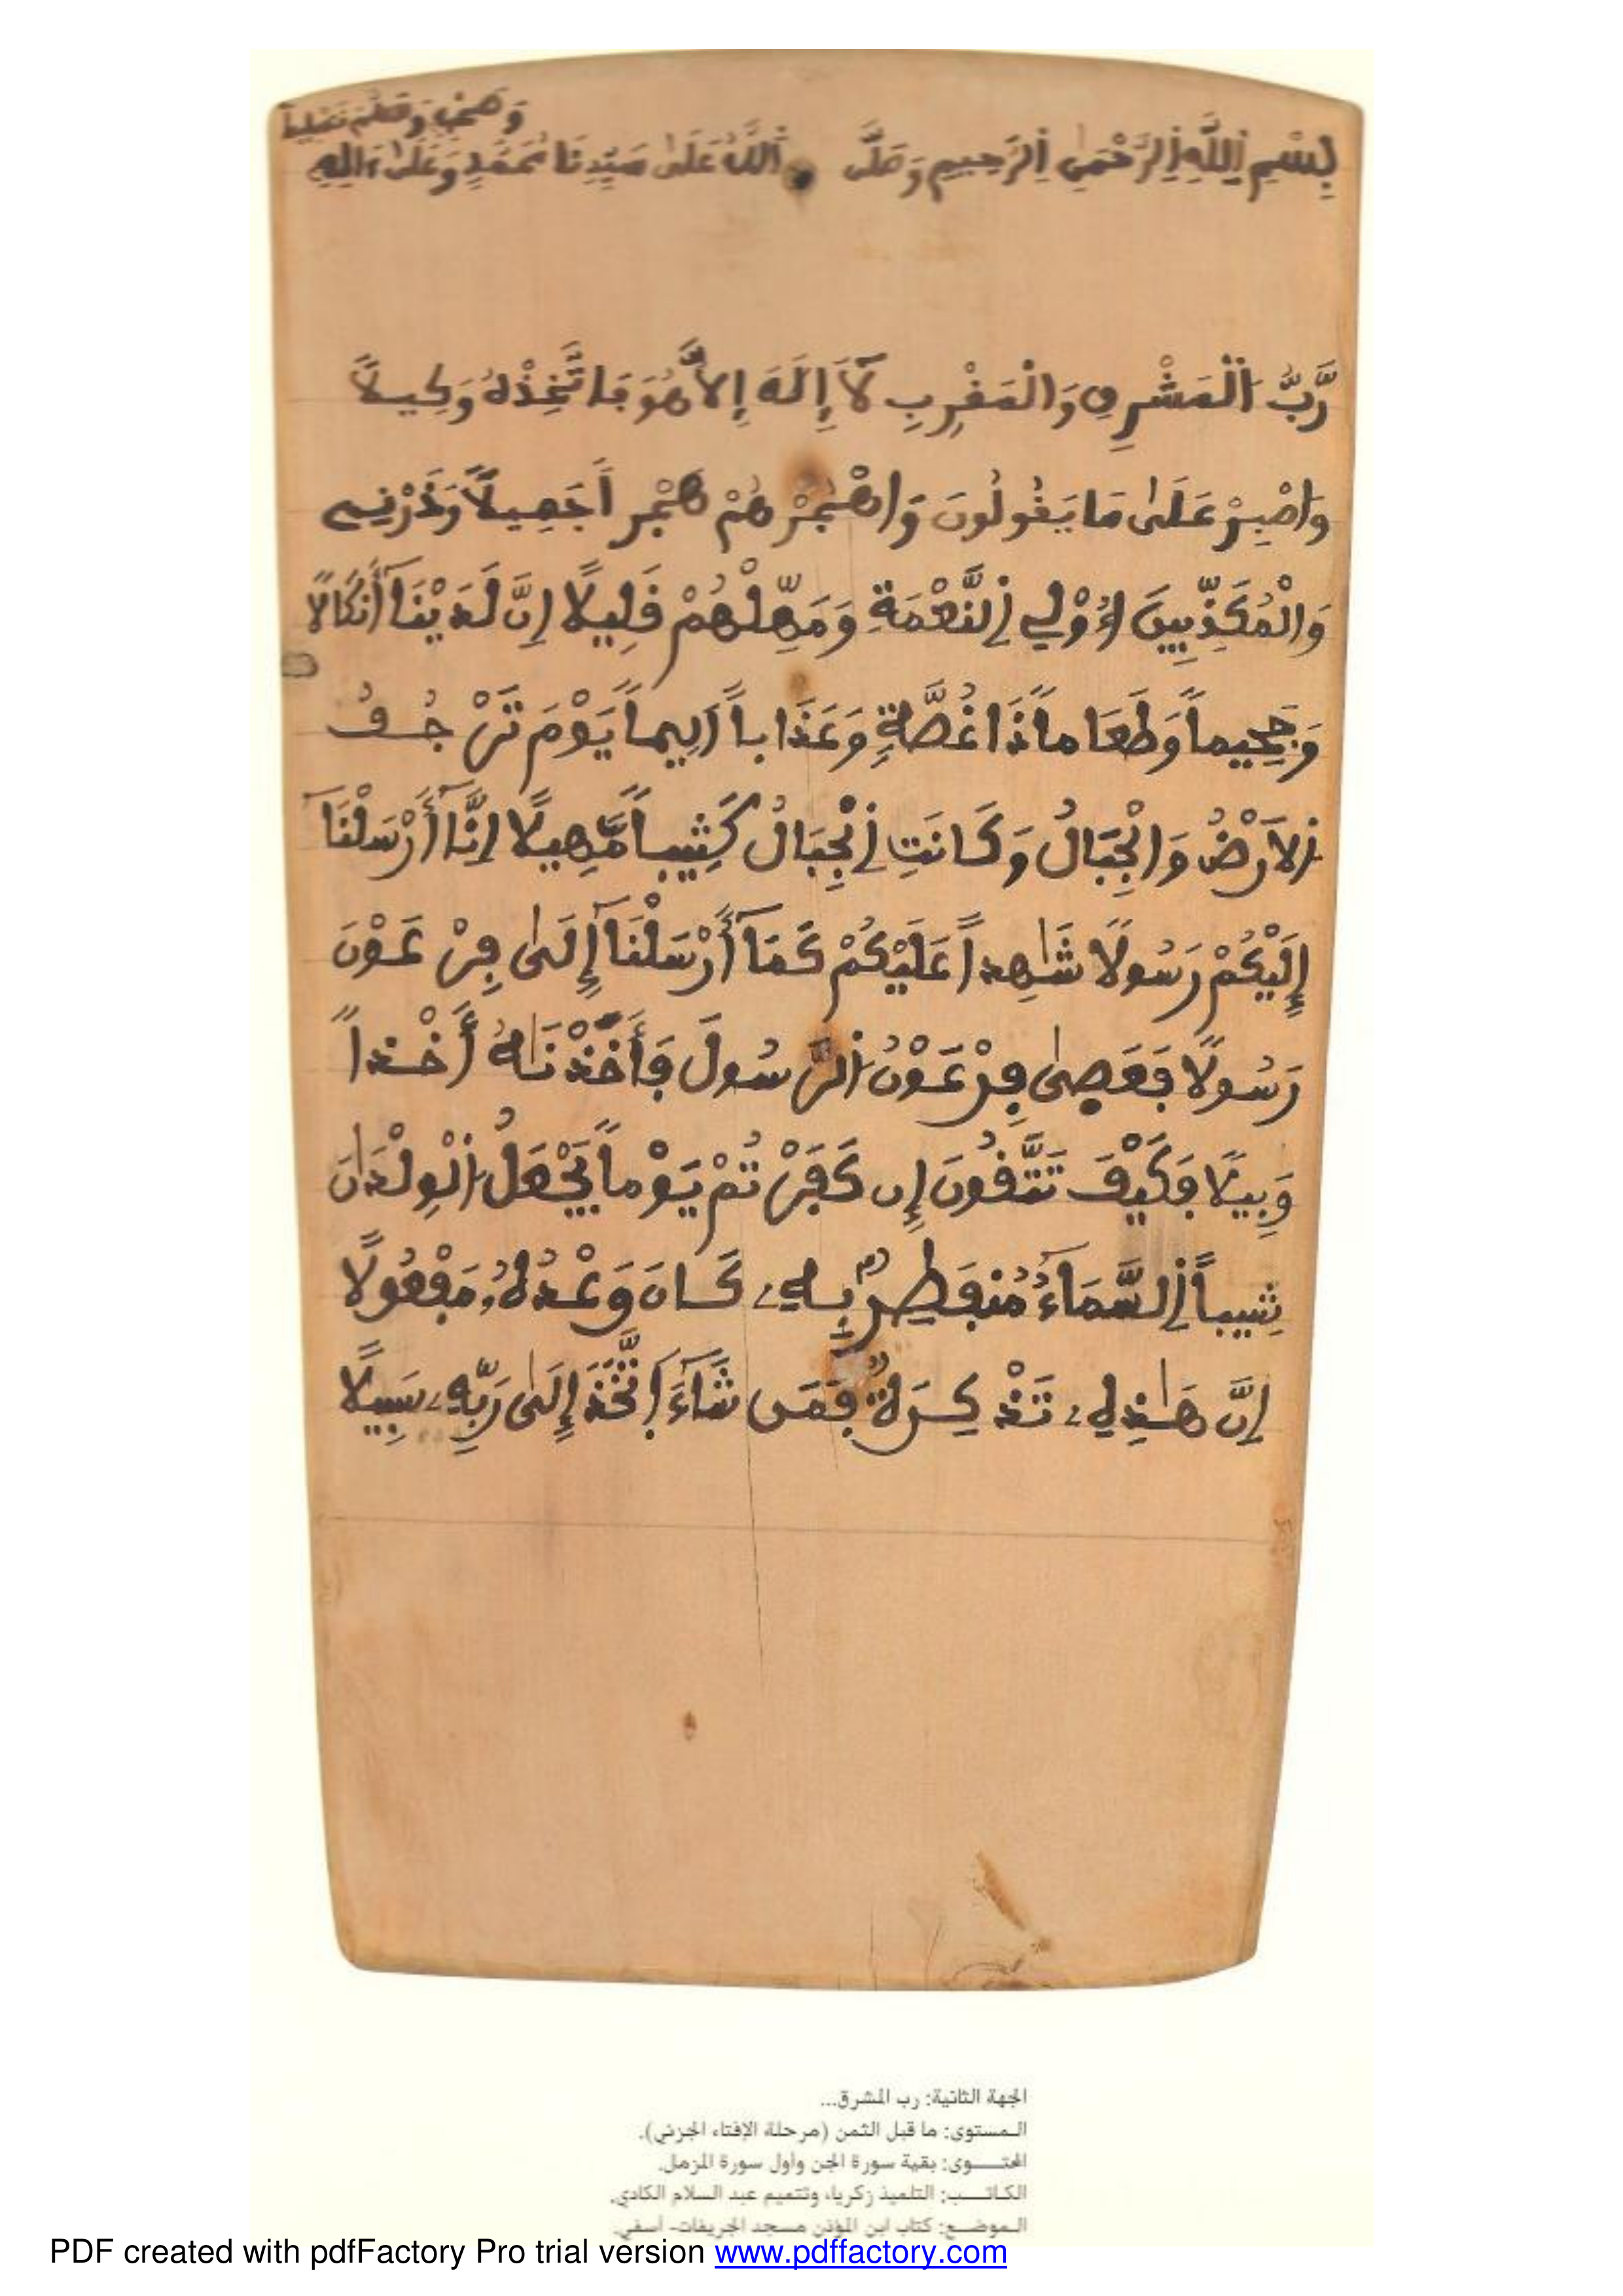 وَصَحْبِهِ وَسَلَّمَ تَسْلِيماً
بِسْمِ اِللَّهِ اِلرَّحْمَٰنِ اِلرَّحِيمِ وَصَلَّى اَللَّهُ عَلَىٰ سَيِّدِنَا مُحَمَّدٍ وَعَلَىٰ ءَالِهِ
رَّبُّ اُلْمَشْرِقِ وَالْمَغْرِبِ لَآ إِلَٰهَ إِلَّا هُوَ فَاتَّخِذْهُ وَكِيلًا
وَاصْبِرْ عَلَىٰ مَا يَقُولُونَ وَاهْجُرْهُمْ هَجْراً جَمِيلًا وَذَرْنِي
وَالْمُكَذِّبِينَ أُوْلِي اِلنَّعْمَةِ وَمَهِّلْهُمْ قَلِيلًا إِنَّ لَدَيْنَآ أَنكَالًا
وَجَحِيماً وَطَعَاماً ذَا غُصَّةٍ وَعَذَاباً اَلِيماً يَوْمَ تَرْجُفُ
اُلَارْضُ وَالْجِبَالُ وَكَانَتِ اِلْجِبَالُ كَثِيباً مَّهِيلًا إِنَّآ أَرْسَلْنَآ
إِلَيْكُمْ رَسُولًا شَٰهِداً عَلَيْكُمْ كَمَآ أَرْسَلْنَآ إِلَىٰ فِرْعَوْنَ
رَسُولًا فَعَصَىٰ فِرْعَوْنُ اُلرَّسُولَ فَأَخَذْنَٰهُ أَخْذاً
وَبِيلًا فَكَيْفَ تَتَّقُونَ إِن كَفَرْتُمْ يَوْماً يَجْعَلُ اُلْوِلْدَٰنَ
شِيباً اِلسَّمَآءُ مُنفَطِرٌ بِهِۦ كَانَ وَعْدُهُۥ مَفْعُولًا
إِنَّ هَٰذِهِۦ تَذْكِرَةٌ فَمَن شَآءَ اَتَّخَذَ إِلَىٰ رَبِّهِۦ سَبِيلًا
الجهة الثانية: رب المشرق...
المستوى: ما قبل الثمن (مرحلة الإفتاء الجزئي).
المحتـــوى: بقية سورة الجن وأول سورة المزمل.
الكاتـــب: التلميذ زكرياء وتتميم عبد السلام الكادي.
الـموضـــع: كتاب ابن المؤذن مسجد الجريفات- أسفي.
PDF created with pdfFactory Pro trial version www.pdffactory.com